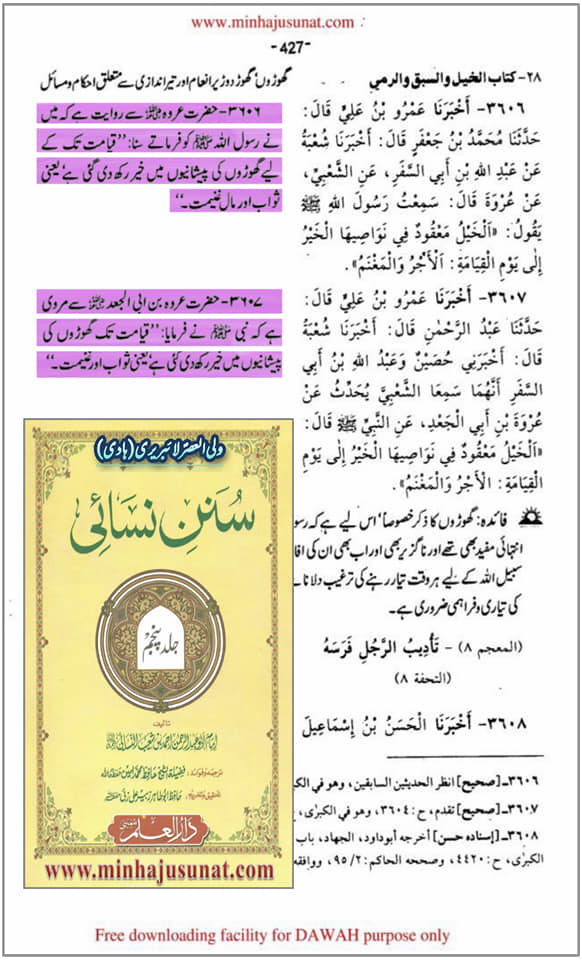 www.minhajusunat.com
-427-
٢٨- كتاب الخيل والسبق والرمي
گھوڑوں، گھوڑ دوڑ پر انعام اور تیر اندازی سے متعلق احکام و مسائل
٣٦٠٦- أَخْبَرَنَا عَمْرُو بْنُ عَلِيٍّ قَالَ:
حَدَّثَنَا مُحَمَّدُ بْنُ جَعْفَرٍ قَالَ: أَخْبَرَنَا شُعْبَةُ
عَنْ عَبْدِ اللهِ بْنِ أَبِي السَّفَرِ، عَنِ الشَّعْبِيِّ،
عَنْ عُرْوَةَ قَالَ: سَمِعْتُ رَسُولَ اللهِ ﷺ
يَقُولُ: «اَلْخَيْلُ مَعْقُودٌ فِي نَوَاصِيهَا الْخَيْرُ
إِلَى يَوْمِ الْقِيَامَةِ: اَلْأَجْرُ وَالْمَغْنَمُ».
۳۶۰۶- حضرت عروہ ؓ سے روایت ہے کہ میں
نے رسول اللہ ﷺ کو فرماتے سنا: ”قیامت تک کے
لیے گھوڑوں کی پیشانیوں میں خیر رکھ دی گئی ہے، یعنی
ثواب اور مال غنیمت۔“
٣٦٠٧- أَخْبَرَنَا عَمْرُو بْنُ عَلِيٍّ قَالَ:
حَدَّثَنَا عَبْدُ الرَّحْمٰنِ قَالَ: أَخْبَرَنَا شُعْبَةُ
قَالَ: أَخْبَرَنِي حُصَيْنٌ وَعَبْدُ اللهِ بْنُ أَبِي
السَّفَرِ أَنَّهُمَا سَمِعَا الشَّعْبِيَّ يُحَدِّثُ عَنْ
عُرْوَةَ بْنِ أَبِي الْجَعْدِ، عَنِ النَّبِيِّ ﷺ قَالَ:
«اَلْخَيْلُ مَعْقُودٌ فِي نَوَاصِيهَا الْخَيْرُ إِلَى يَوْمِ
الْقِيَامَةِ: اَلْأَجْرُ وَالْمَغْنَمُ».
۳۶۰۷- حضرت عروہ بن ابی الجعد ؓ سے مروی
ہے کہ نبی ﷺ نے فرمایا: ”قیامت تک گھوڑوں کی
پیشانیوں میں خیر رکھ دی گئی ہے یعنی ثواب اور غنیمت۔“
فائدہ: گھوڑوں کا ذکر خصوصاً اس لیے ہے کہ رسو
انتہائی مفید بھی تھے اور ناگزیر بھی اور اب بھی ان کی افا
سبیل اللہ کے لیے ہر وقت تیار رہنے کی ترغیب دلانا ہے
کی تیاری و فراہمی ضروری ہے۔
(المعجم ٨) - تَأْدِيبُ الرَّجُلِ فَرَسَهُ
(التحفة ٨)
٣٦٠٨- أَخْبَرَنَا الْحَسَنُ بْنُ إِسْمَاعِيلَ
٣٦٠٦- [صحيح] انظر الحديثين السابقين، وهو في الكب
٣٦٠٧- [صحيح] تقدم، ح: ٣٦٠٤، وهو في الكبرٰى،
٣٦٠٨- [إسناده حسن] أخرجه أبوداود، الجهاد، باب
الكبرٰى، ح: ٤٤٢٠، وصححه الحاكم: ٢/ ٩٥، ووافقه
ولی العصر لائبریری (ہادی)
سُننِ نسائی
جلد پنجم
تالیف
امام ابو عبدالرحمٰن احمد بن شعیب النسائی
ترجمہ و فوائد: فضیلۃ الشیخ حافظ محمد امین
تحقیق و تخریج: حافظ ابو طاہر زبیر علی زئی
دار العلم
www.minhajusunat.com
Free downloading facility for DAWAH purpose only